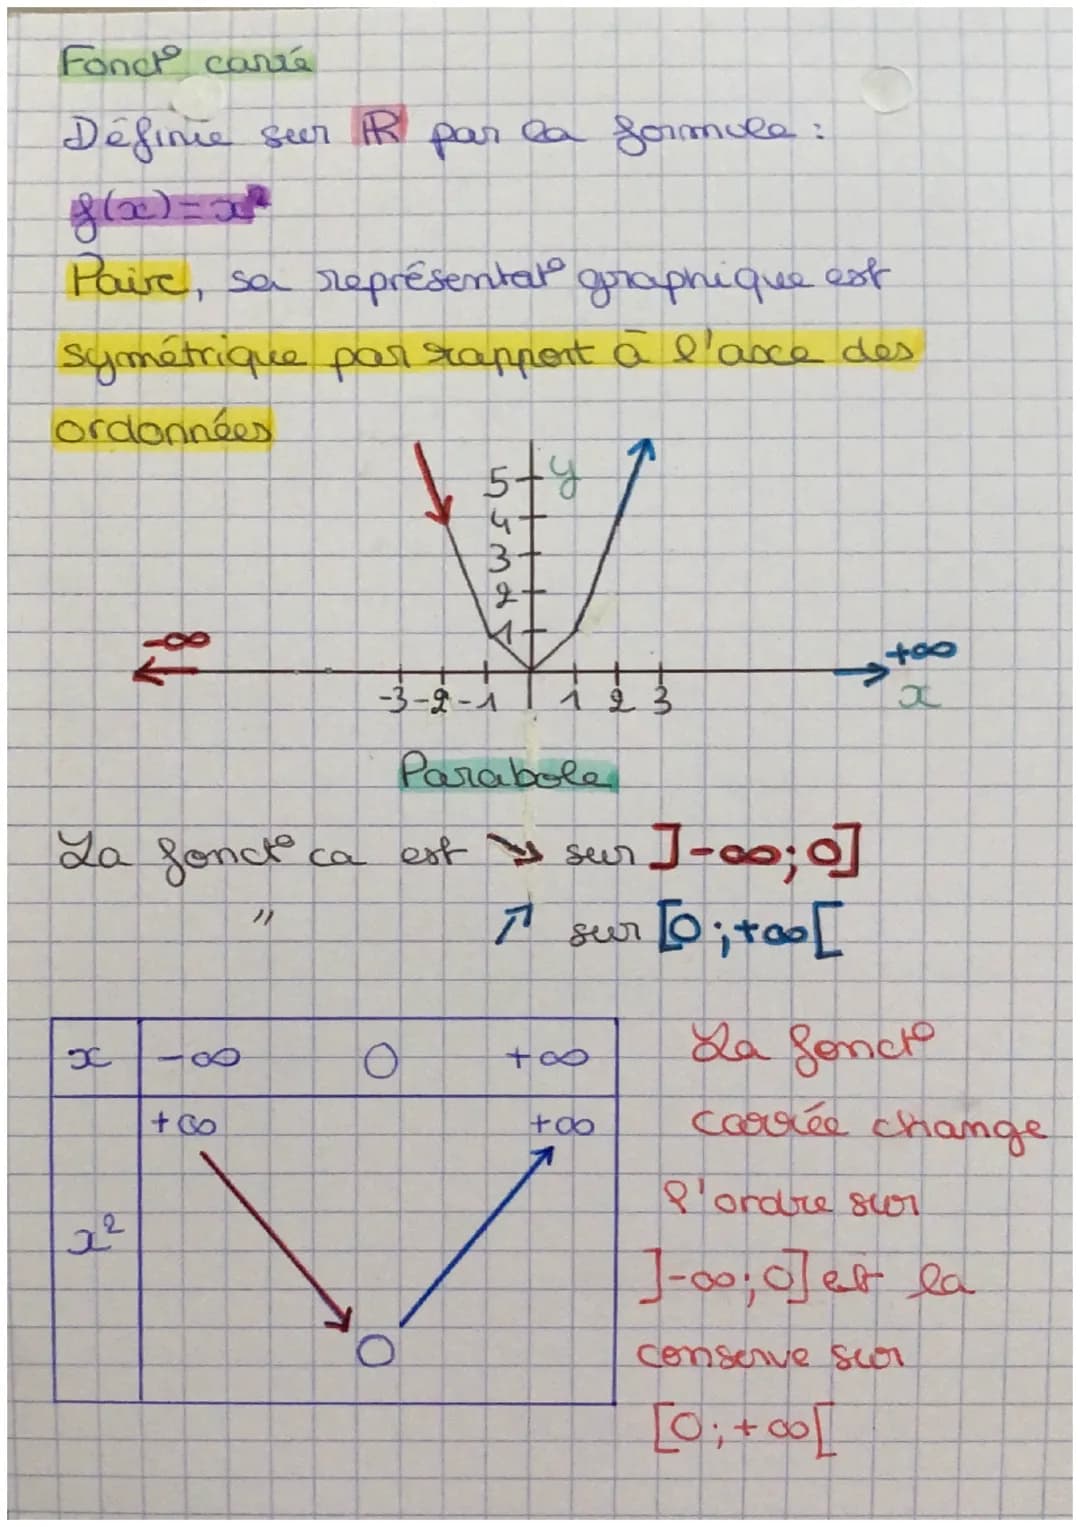 Fonct° carré
Définie sur ℝ par la formule :
f(x)=x²
Paire, sa représentat° graphique est
symétrique par rapport à l'axe des
ordonnées
5 y
4
3
2
1
-∞ +∞
-3 -2 -1 1 2 3 x
Parabole
La fonct° ca est ↘ sur ]-∞;0]
" ↗ sur [0;+∞[
x -∞ 0 +∞
+∞ +∞
x²
0
La fonct°
carrée change
l'ordre sur
]-∞;0] et la
conserve sur
[0;+∞[